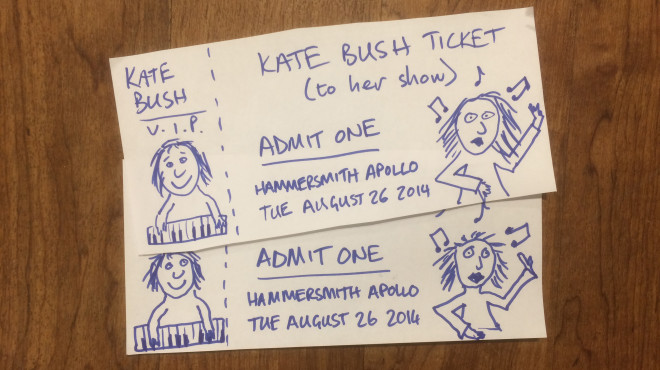 KATE
BUSH
V.I.P.
KATE BUSH TICKET
(to her show)
ADMIT ONE
HAMMERSMITH APOLLO
TUE AUGUST 26 2014
ADMIT ONE
HAMMERSMITH APOLLO
TUE AUGUST 26 2014